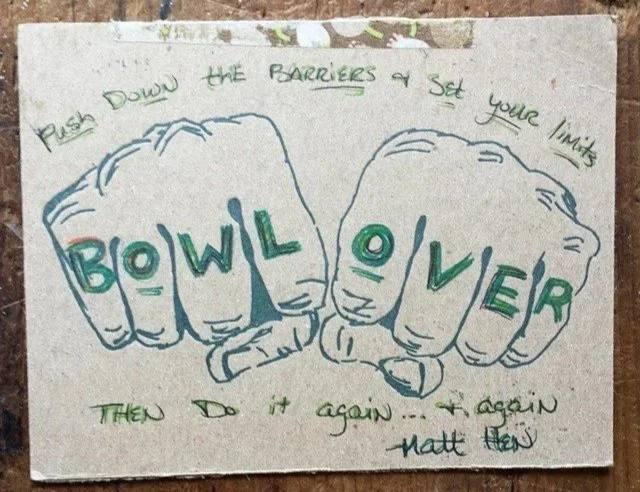 Push DOWN tHE BARRIERS & Set your limits
BOWL OVER
THEN Do it again... & again
Matt HEN